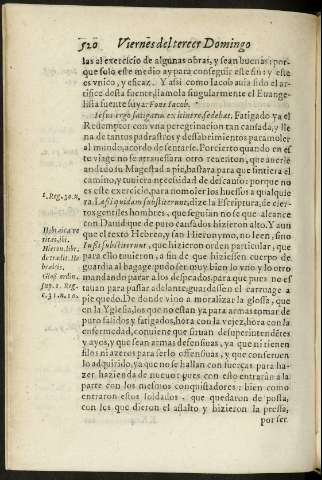 520 Viernes del tercer Domingo
las al exercicio de algunas obras, y sean buenas: por-
que solo este medio ay para conseguir este fin: y este
es vnico, y eficaz. Y assi como Iacob auia sido el ar-
tifice desta fuente, llamola singularmente el Euange-
lista fuente suya: Fons Iacob.
Iesus ergo fatigatus ex itinere, sedebat. Fatigado ya el
Redemptor con vna peregrinacion tan cansada, y lle
na de tantos padrastos y dessabrimientos para moler
al mundo, acordo de sentarse. Por cierto quando en es
te viage no se atrauessara otro rebenton, que auerle
andado su Magestad a pie, bastara para que sintiera el
camino, y tuuiera necessidad de descanso: porque no
es este exercicio, para no moler los huessos a qualquie
ra. Lassi quidam substiterunt, dize la Escriptura, de cier-
tos gentiles hombres, que seguian no se que alcance
con Dauid que de puro cansados hizieron alto. Y aun
que el texto Hebreo, y san Hieronymo, no leen, sino
Iussi substiterunt, que hizieron orden particular, que
para ello tuuieron, a fin de que hiziessen cuerpo de
guardia al bagage: pudo ser muy bien lo vno y lo otro
mandando parar a los despeados, para que pues no es
tauan para passar adelante, guardassen el carruage a
pie quedo. De donde vino a moralizar la glossa, que
en la Yglesia, los que no estan ya para armas tomar de
puro falidos y fatigados, hora con la vejez, hora con la
enfermedad, conuiene que siruan de superintendẽtes
y ayos, y que sean armas defensiuas, ya que ni tienen
filos ni azeros para serlo offensiuas, y que conseruen
lo adquirido, ya que no se hallan con fuerças para ha-
zer hazienda de nueuo: pues con esto entrarãn a la
parte con los mesmos conquistadores: bien como
entraron estos soldados, que quedaron de posta,
con los que dieron el assalto y hizieron la pressa,
por ser
1. Reg. 30. n.
Hebraica ve
ritas, ibi.
Hieron. lib.
de tradit. He
braicis.
Glos. ordin.
sup. 1. Reg.
c. 31. n. 10.